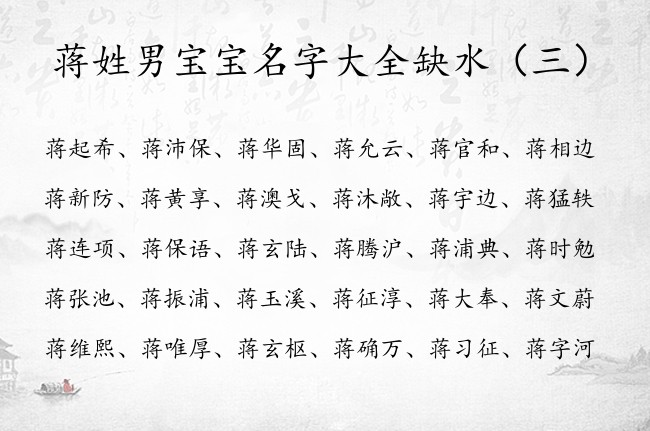 蒋姓男宝宝名字大全缺水（三）
蒋起希、蒋沛保、蒋华固、蒋允云、蒋官和、蒋相边
蒋新防、蒋黄享、蒋澳戈、蒋沐敞、蒋宇边、蒋猛轶
蒋连项、蒋保语、蒋玄陆、蒋腾沪、蒋浦典、蒋时勉
蒋张池、蒋振浦、蒋玉溪、蒋征淳、蒋大奉、蒋文蔚
蒋维熙、蒋唯厚、蒋玄枢、蒋确万、蒋习征、蒋字河